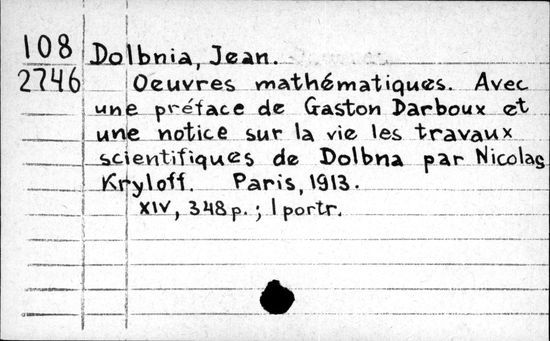 108 Dolbnia, Jean.
2746 Oeuvres mathématiques. Avec
une préface de Gaston Darboux et
une notice sur la vie les travaux
scientifiques de Dolbna par Nicolas
Kryloff. Paris, 1913.
XIV, 348 p. ; 1 portr.